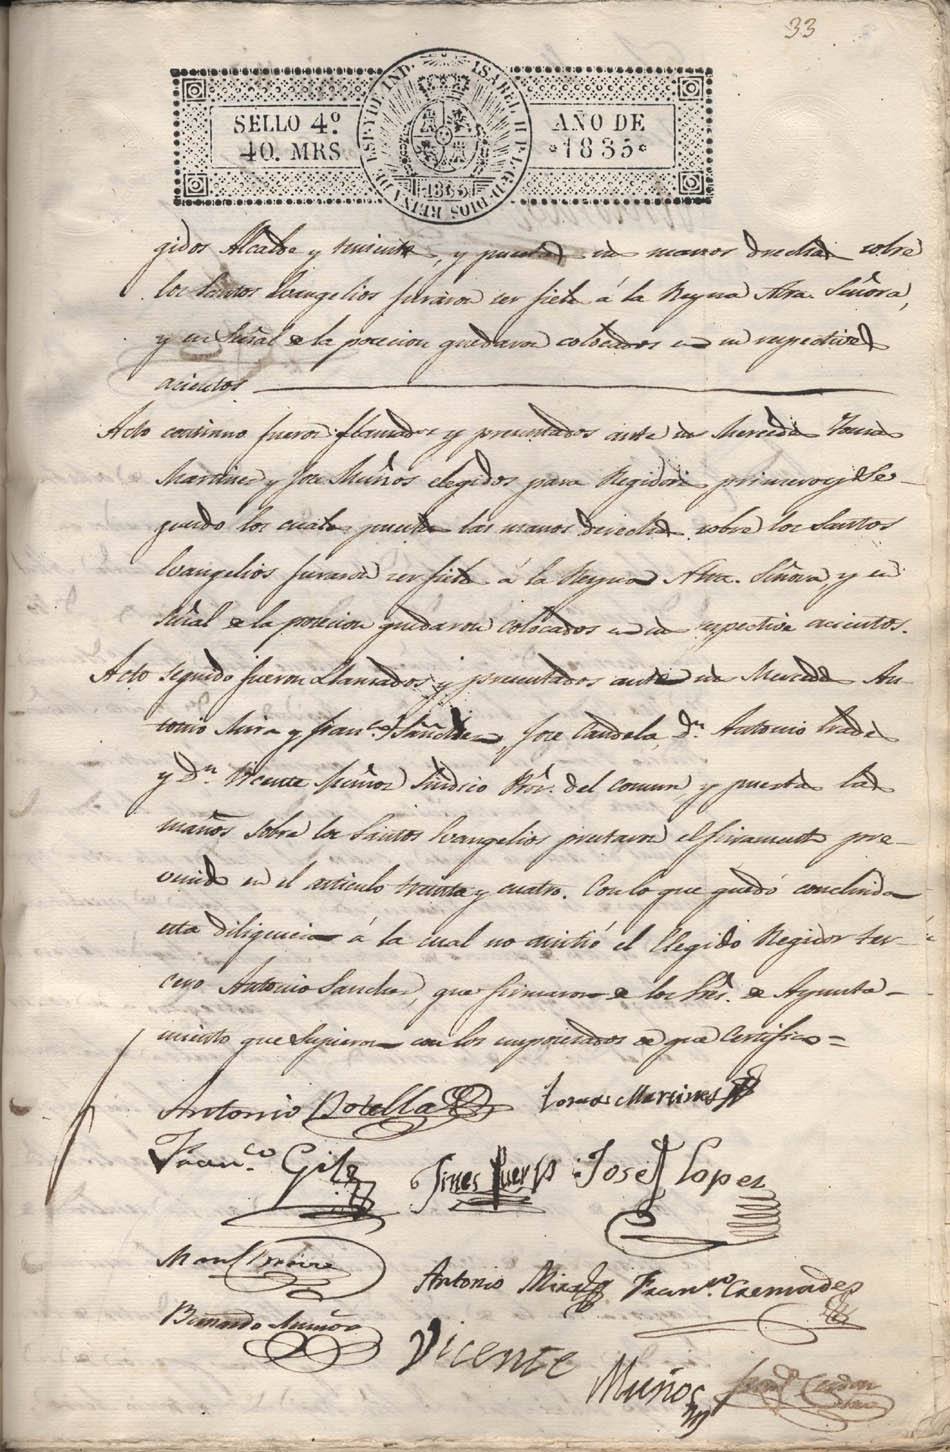 33
SELLO 4º
40. MRS
ISABEL II P. L. G. D. DIOS REINA DE ESP. Y DE IND.
1835
AÑO DE
1835
gidos Alcalde y teniente, y puestas sus manos drechas sobre
los Santos Evangelios juraron ser fieles á la Reyna Ntra. Señora,
y en Señal de la posecion quedaron colocados en sus respectivos
acientos.
Acto continuo fueron llamados y presentados ante su Merced Tomas
Martines y Jose Muños elegidos para Regidores primero y Se-
gundo los cuales puestas las manos derechas sobre los Santos
Evangelios juraron ser fieles á la Reyna Ntra. Señora, y en
Señal de la posecion quedaron colocados en sus repectivos acientos.
Acto seguido fueron Llamados y presentados ante su Merced An-
tonio Mira y Franco. Sanches, Jose Candela, Dn. Antonio
y Dn. Vicente Muños Sindico Pror. del comun y puestas las
manos sobre los Santos Evangelios prestaron el juramento pre-
venido en el articulo treinta y cuatro. Con lo que quedó concluida
esta diligencia á la cual no asistió el Elegido Regidor ter-
cero Antonio Sanches, que firmaron de los Sres. de Ayunta-
miento que supieron con los de que Certifico=
Antonio Botella
Tomas Martines
Franco. Gil
Gines Puerto
Jose Lopes
Manl.
Antonio Mira
Franco. Cremades
Bernardo Muños
Vicente
Muños